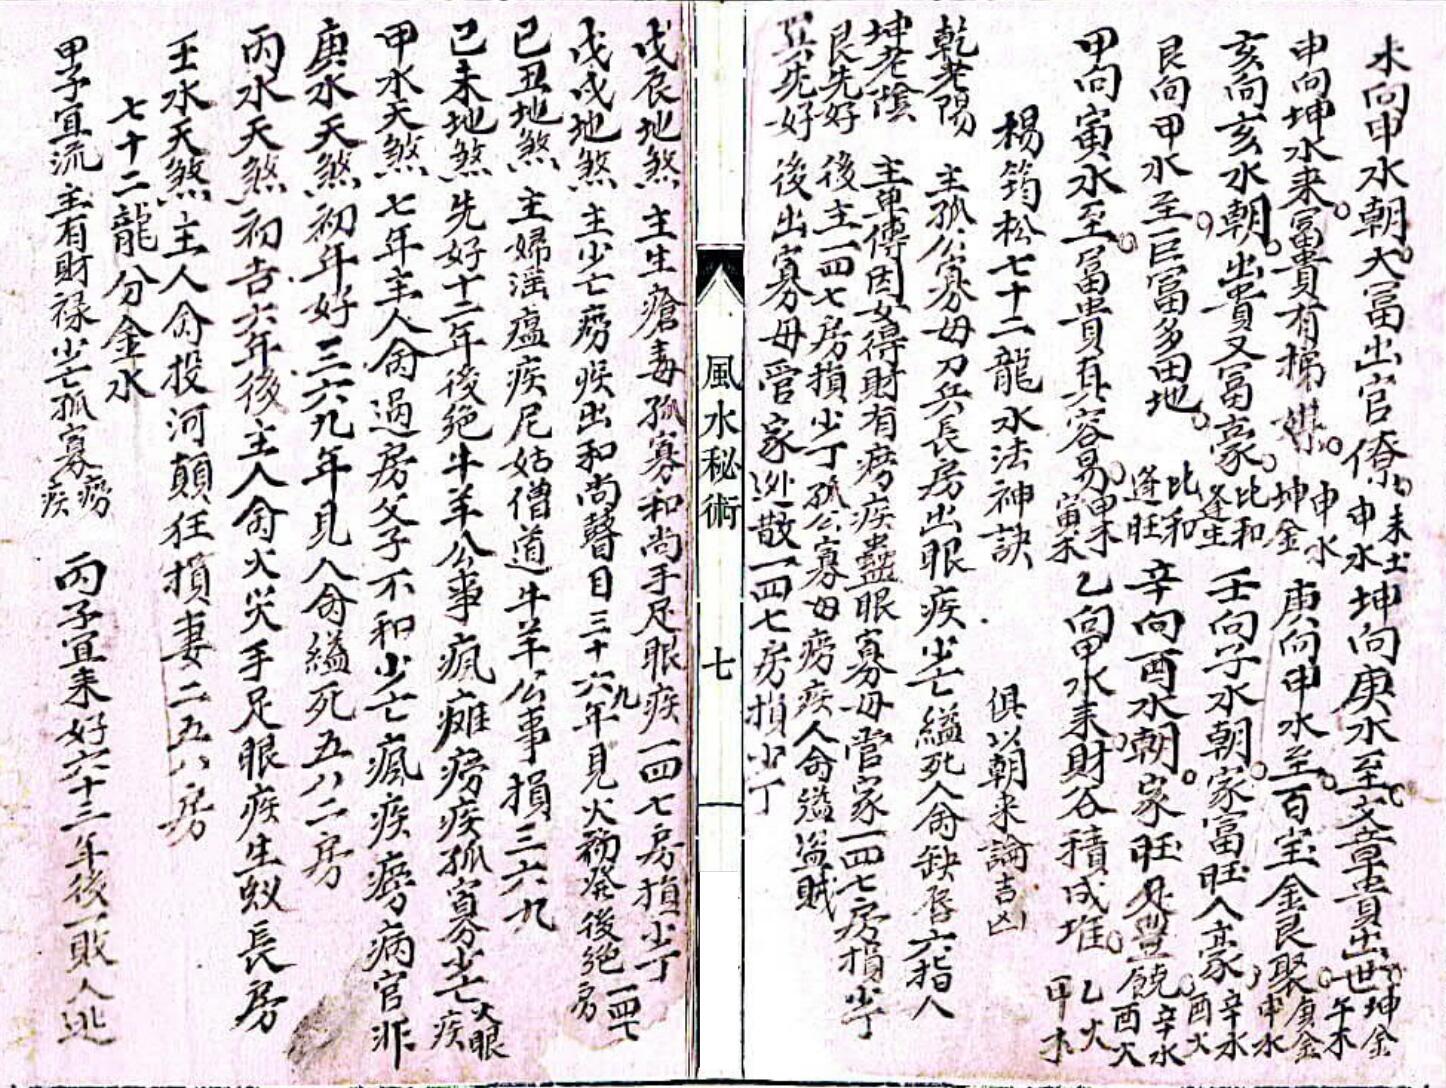 未向申水朝大富出官僚未土申水坤向庚水至文章貴出世坤金午木
申向坤水来富貴有梯坤金申水庚向申水至百宝金良聚庚金申水
亥向亥水朝出貴又富豪比和逢生壬向子水朝家富旺人豪辛水酉火
艮向甲水至巨富多田地比和逢旺辛向酉水朝家旺豐饒辛水酉火
甲向寅水至富貴真容易甲木寅木乙向甲水来財谷積成堆乙火甲木
楊筠松七十二龍水法神訣 俱以朝来論吉凶
乾老陽 主孤公寡母刀兵長房出眼疾少亡縊死人命缺唇六指人
坤老陰 主单傳因女得財有癆疾蠱眼寡母當家一四七房損少丁
艮先好 後主一四七房損少丁孤公寡母癆疾人命縊盗賊
巽先好 後出寡母管家逃散一四七房損少丁
風水秘術 七
戊辰地煞 主生瘡毒孤寡和尚手足眼疾一四七房損少丁
戊戌地煞 主少亡癆疾出和尚瞽目三十六九年見火初發後絕一四七房
己丑地煞 主婦淫瘟疾尼姑僧道牛羊公事損三六九
己未地煞 先好十二年後絕牛羊公事瘋癱癆疾孤寡少亡火眼疾
甲水天煞 七年主人命過房父子不和少亡瘋疾癆病官非
庚水天煞初年好三六九年見人命縊死五八二房
丙水天煞初吉六年後主人命火災手足眼疾生蚁長房
壬水天煞主人命投河顛狂損妻二五八房
七十二龍分金水
甲子宜流主有財禄少亡孤寡癆疾 丙子宜来好六十三年後一敗人逃